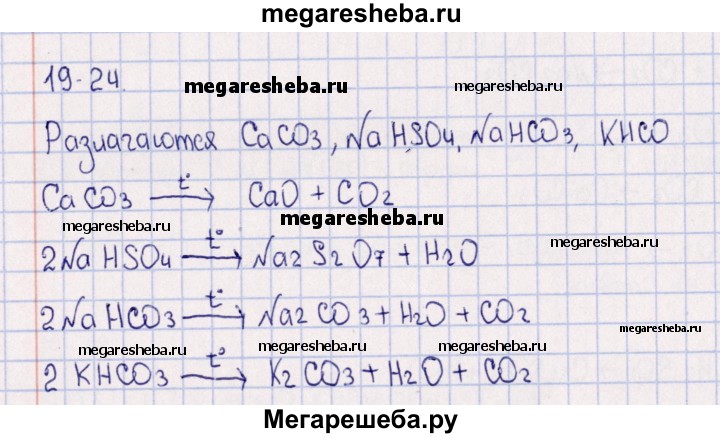 megaresheba.ru
19-24.
megaresheba.ru
megaresheba.ru
Разлагаются CaCO3, NaHSO4, NaHCO3, KHCO
CaCO3 t° → CaO + CO2
megaresheba.ru
megaresheba.ru
megaresheba.ru
2NaHSO4 t° → Na2S2O7 + H2O
2NaHCO3 t° → Na2CO3 + H2O + CO2
megaresheba.ru
megaresheba.ru
megaresheba.ru
2KHCO3 t° → K2CO3 + H2O + CO2
Мегарешеба.ру